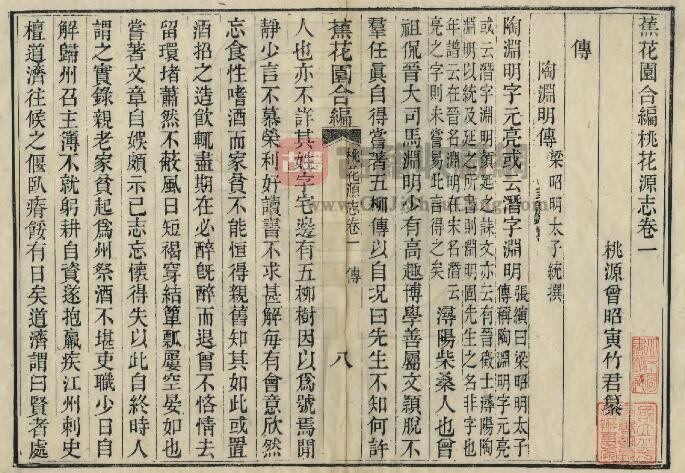 蕉花園合編桃花源志卷一
桃源曾昭寅竹君纂
傳
陶淵明傳
梁昭明太子統撰
陶淵明字元亮或云潛字淵明
張縯曰梁昭明太子
傳稱陶淵明字元亮
或云潛字淵明顏延之誄文亦云有晉徵士潯陽陶
淵明以統及延之所書則淵明固先生之名非字也
年譜云在晉名淵明在宋名潛元
亮之字則未嘗易此言得之矣
潯陽柴桑人也曾
祖侃晉大司馬淵明少有高趣博學善屬文穎脫不
羣任眞自得嘗著五柳傳以自况曰先生不知何許
蕉花園合編
桃花源志卷一 傳
八
人也亦不詳其姓字宅邊有五柳樹因以爲號焉閒
靜少言不慕榮利好讀書不求甚解每有會意欣然
忘食性嗜酒而家貧不能恒得親舊知其如此或置
酒招之造飲輒盡期在必醉旣醉而退曾不恡情去
留環堵蕭然不蔽風日短褐穿結簞瓢屢空晏如也
嘗著文章自娛頗示己志忘懷得失以此自終時人
謂之實錄親老家貧起爲州祭酒不堪吏職少日自
解歸州召主簿不就躬耕自資遂抱羸疾江州刺史
檀道濟往候之偃臥瘠餒有日矣道濟謂曰賢者處